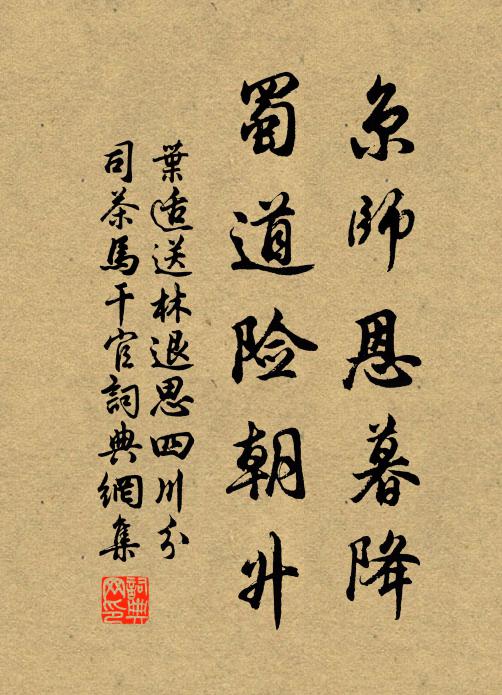 京師恩暮降
蜀道险朝升
葉适送林退思四川分
司茶馬干官詞典網集
詞典網印